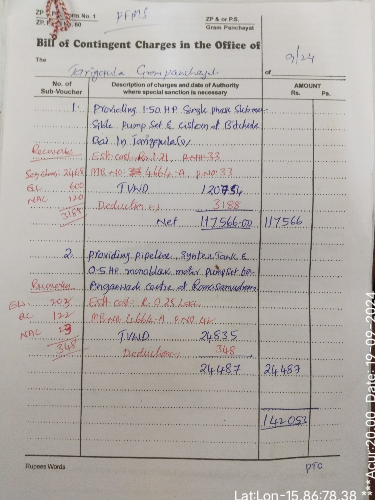 ZP
Form No. 1
PFMS
ZP & or P.S.
60
Gram Panchayat
Bill of Contingent Charges in the Office of
The
Tarigopula Gram panchayat
of
9/24
No. of
Sub-Voucher
Description of charges and date of Authority
where special sanction is necessary
AMOUNT
Rs. P.
1. Providing 1.50 HP Single phase Submer-
sible Pump Set & Cistern at
In Tarigopula(v)
Recoveries Est cost Rs. 1.21 P.NO.33
2468 MB NO 466A-A, P.NO 33
QC 600 TVWD 120754
NAC 120 Deductions 3188
3188 Net 117566-00 117566
2. Providing pipeline, Syntex Tank &
0.5 HP monoblock motor pump set for
Recoveries Anganwadi centre at Ramasamudram
203 Est cost: R. 0.25 Lac
QC 122
NAC 23 TVWD 24835
348 Deductions 348
24487 24487
142053
Rupees Words
PTO
Lat:Lon-15.86:78.38
***Acur:20.00, Date: 19-09-2024